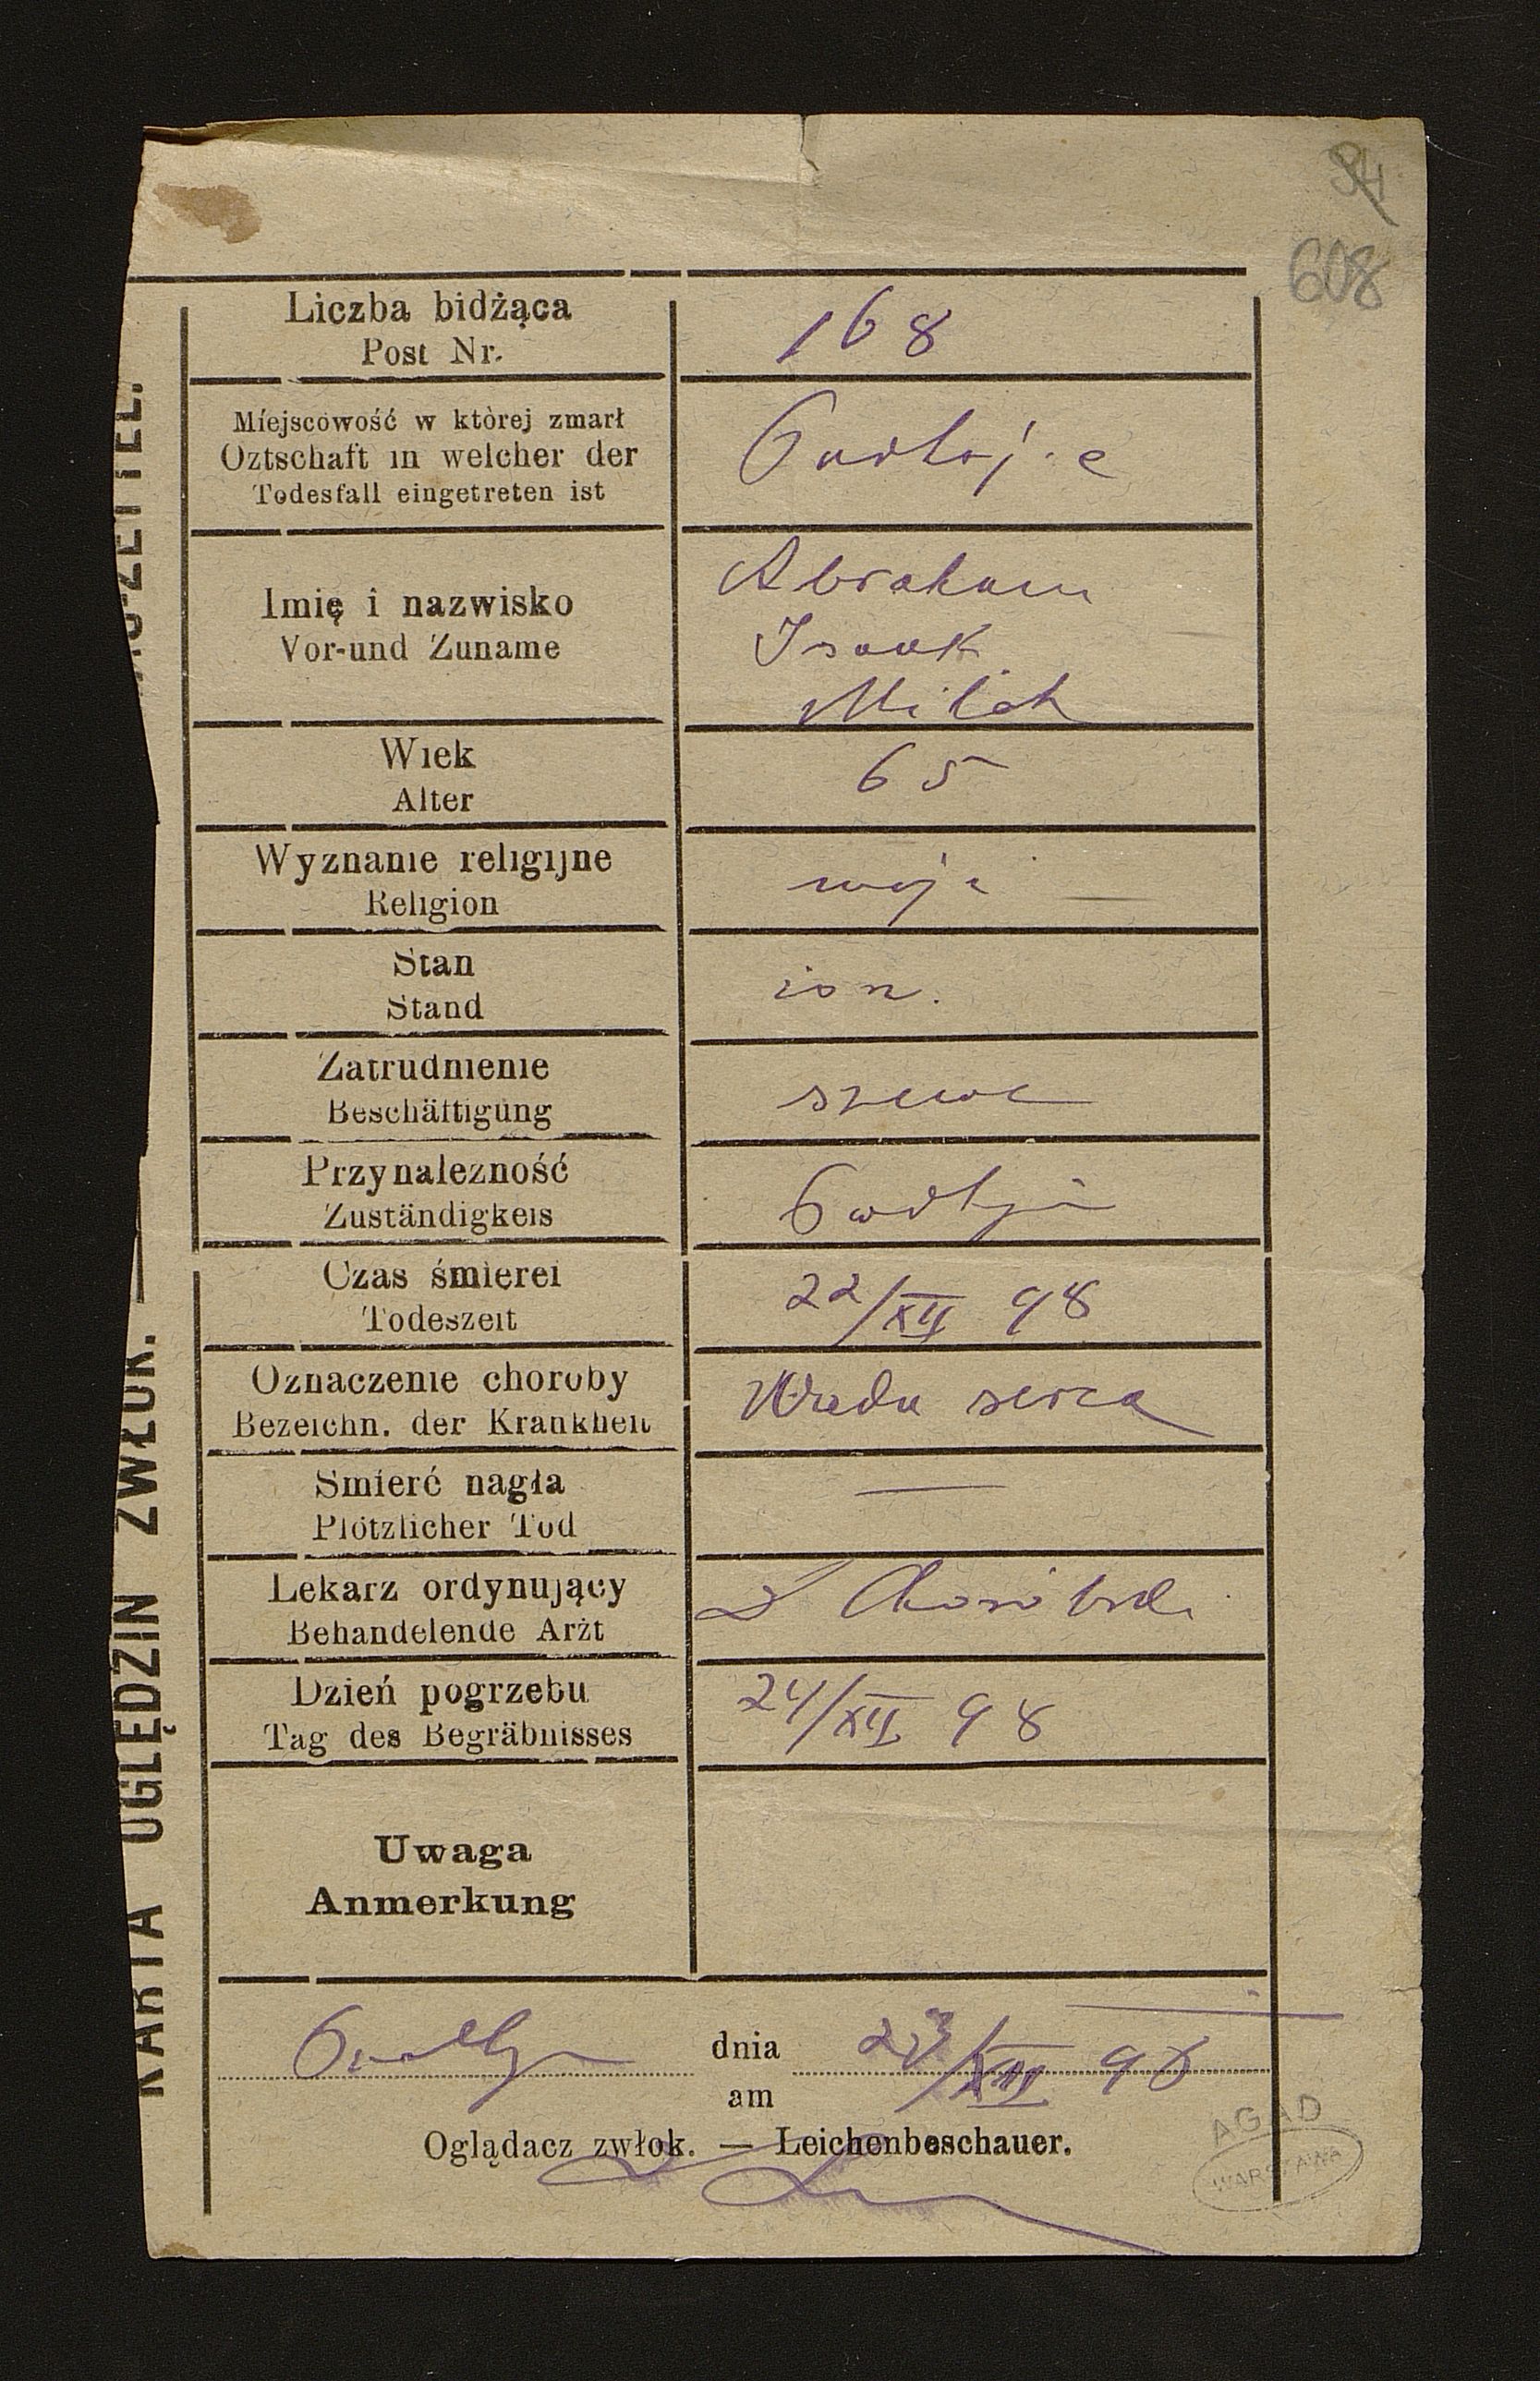 608
Liczba bidżąca
Post Nr.
168
Miejscowość w której zmarł
Oztschaft in welcher der
Todesfall eingetreten ist
Imię i nazwisko
Vor-und Zuname
Abraham
Isaak
Wiek
Alter
65
Wyznanie religijne
Religion
mojż
Stan
Stand
żon.
Zatrudnienie
Beschäftigung
szewc
Przynalezność
Zuständigkeis
Czas śmierei
Todeszeit
22/XII 98
Oznaczenie choroby
Bezeichn. der Krankheit
Wada serca
Smierć nagła
Plötzlicher Tod
—
Lekarz ordynujący
Behandelende Arżt
Dzień pogrzebu
Tag des Begräbnisses
24/XII 98
Uwaga
Anmerkung
dnia 23/XII 98
am
Oglądacz zwłok. — Leichenbeschauer.
KARTA OGLĘDZIN ZWŁOK. —
AGAD
WARSZAWA